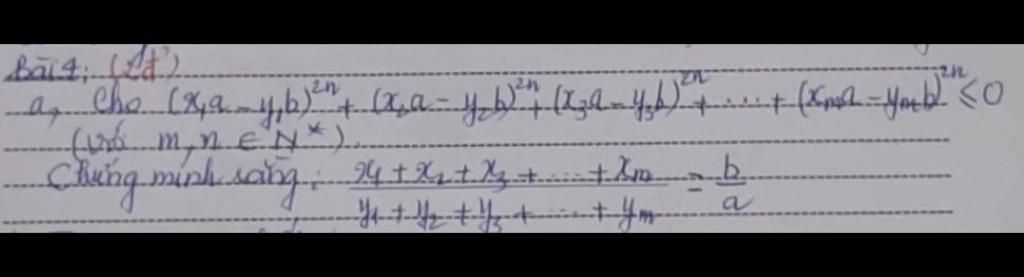 Bài 4: (2đ)
a, Cho (x₁a - y₁b)²ⁿ + (x₂a - y₂b)²ⁿ + (x₃a - y₃b)²ⁿ + ... + (xₘa - yₘb)²ⁿ ≤ 0
(với m, n ∈ N*).
Chứng minh rằng: (x₁ + x₂ + x₃ + ... + xₘ)/(y₁ + y₂ + y₃ + ... + yₘ) = b/a